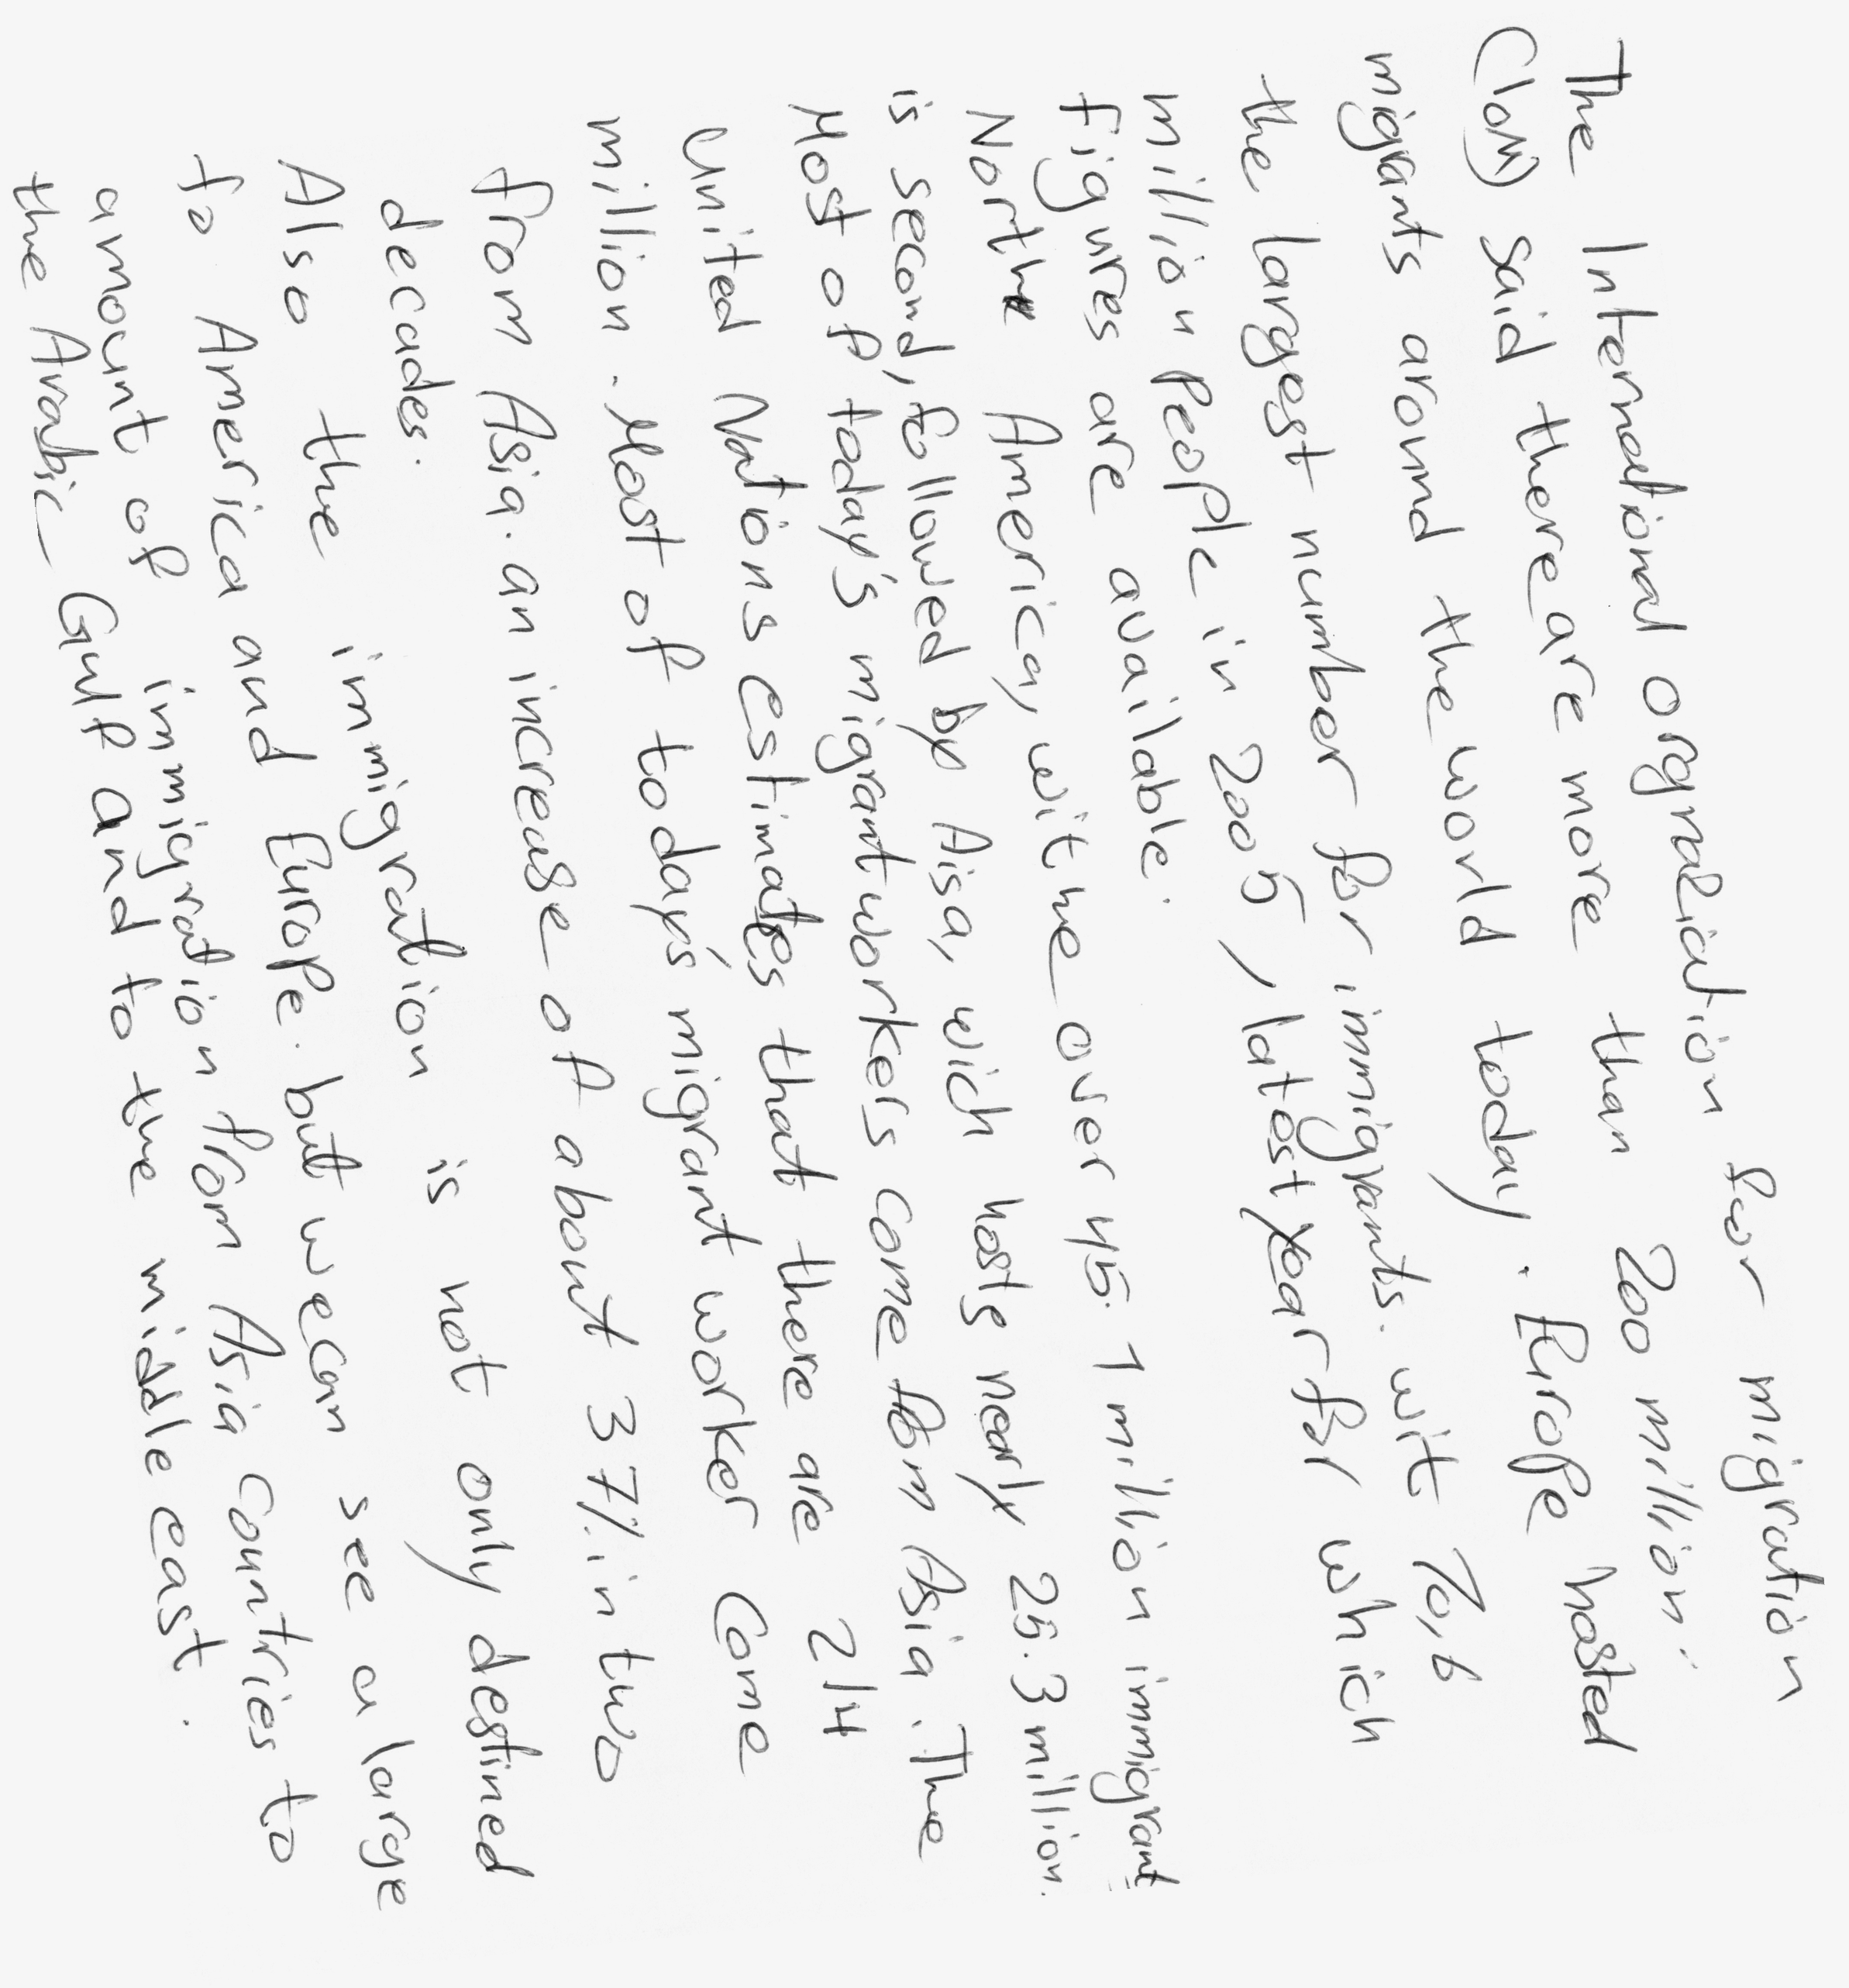 The International orgnaziation for migration
(IOM) said there are more than 200 million.
migrants around the world today. Europe hosted
the largest number for immigrants. wit 70,6
million people in 2005, latest year for which
Figures are available.
North America, withe over 45.1 million immigrant
is second, followed by Aisa, wich hosts nearly 25.3 million.
Most of today's migrant workers come from Asia. The
United Nations estimates that there are 214
million. Most of today's migrant worker come
from Asia. an increase of about 37% in two
decades.
Also the immigration is not only destined
to America and Europe. but we can see a large
amount of immigration from Asia countries to
the Arabic Gulf and to the middle east.